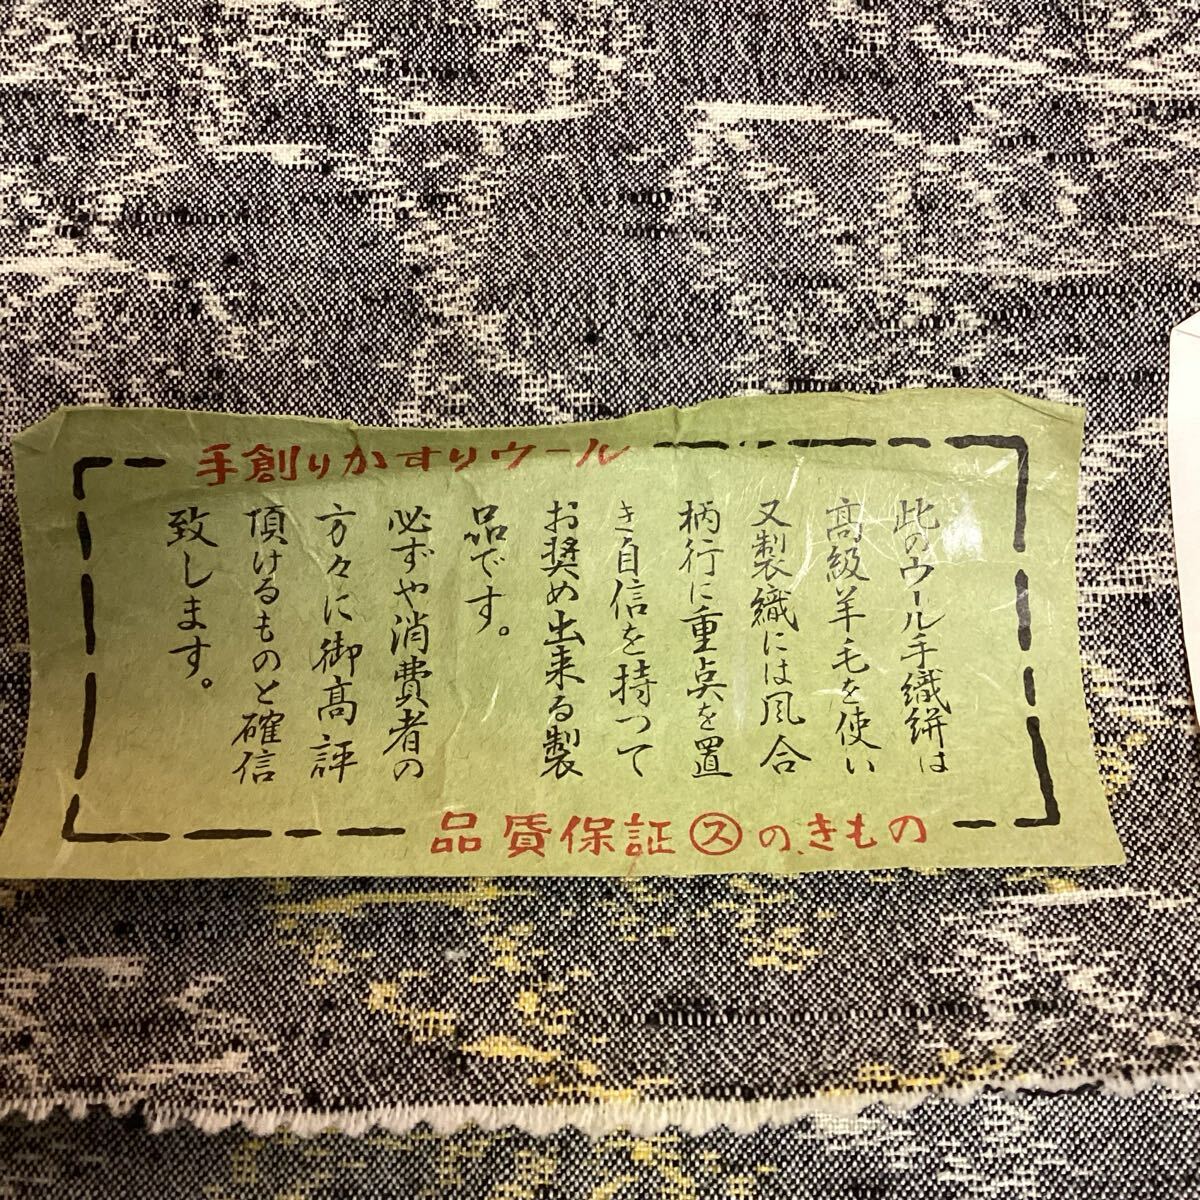 手創りかすりウール
此のウール手織絣は
高級羊毛を使い
又製織には風合
柄行に重点を置
き自信を持つて
お奨め出来る製
品です。
必ずや消費者の
方々に御高評
頂けるものと確信
致します。
品質保証㋜のきもの